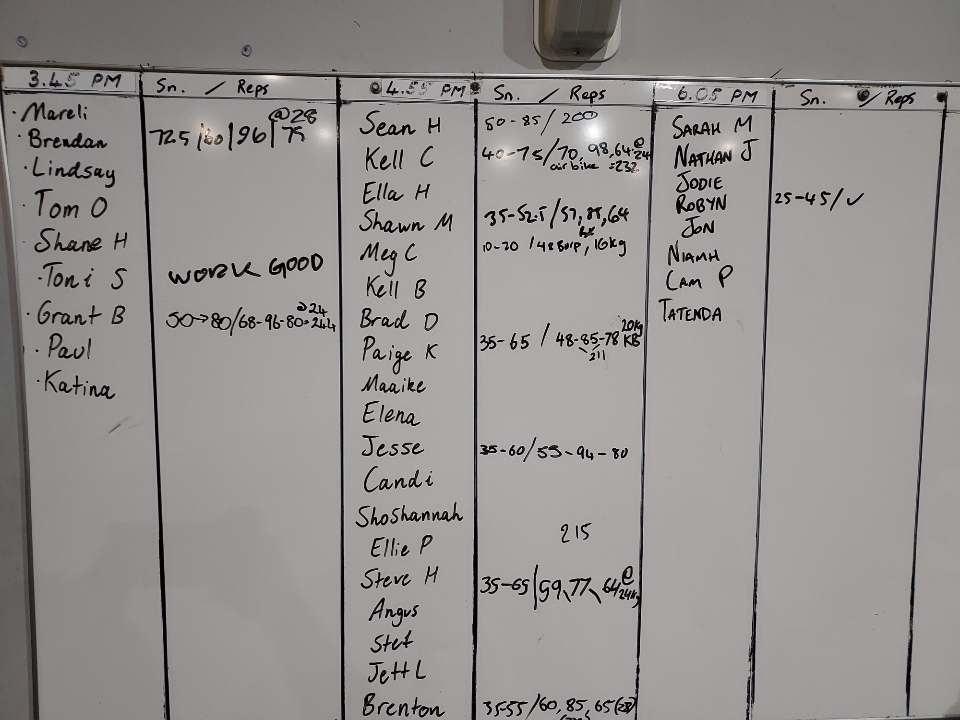 3.45 PM Sn. / Reps
· Mareli @28
· Brendan 72.5/60/96/75
· Lindsay
· Tom O
· Shane H
· Toni S WORK GOOD
· Grant B 50→80/68-96-80=244 @24
· Paul
· Katina
4.55 PM Sn. / Reps
Sean H 80-85/200
Kell C 40-75/70, 98, 64 @24
air bike =232
Ella H
Shawn M 35-52.5/57, 88, 64
Meg C 10-20 /48 Burp, 16kg
Kell B
Brad D
Paige K 35-65 / 48-85-78 20kg KB
211
Maaike
Elena
Jesse 35-60/55-94-80
Candi
Shoshannah
Ellie P 215
Steve H 35-65/59, 77, 64 @ 24kg
Angus
Stef
Jett L
Brenton 35-55/60, 85, 65
6.05 PM Sn. / Reps
SARAH M
NATHAN J
JODIE
ROBYN 25-45/✓
JON
NIAMH
CAM P
TATENDA